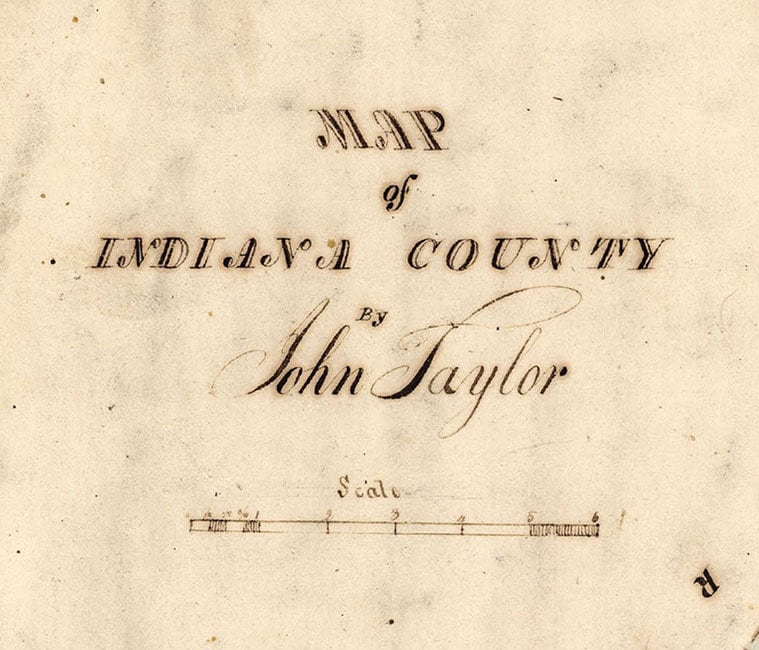 MAP
of
INDIANA COUNTY
By
John Taylor
Scale
1 2 3 4 5 6
R